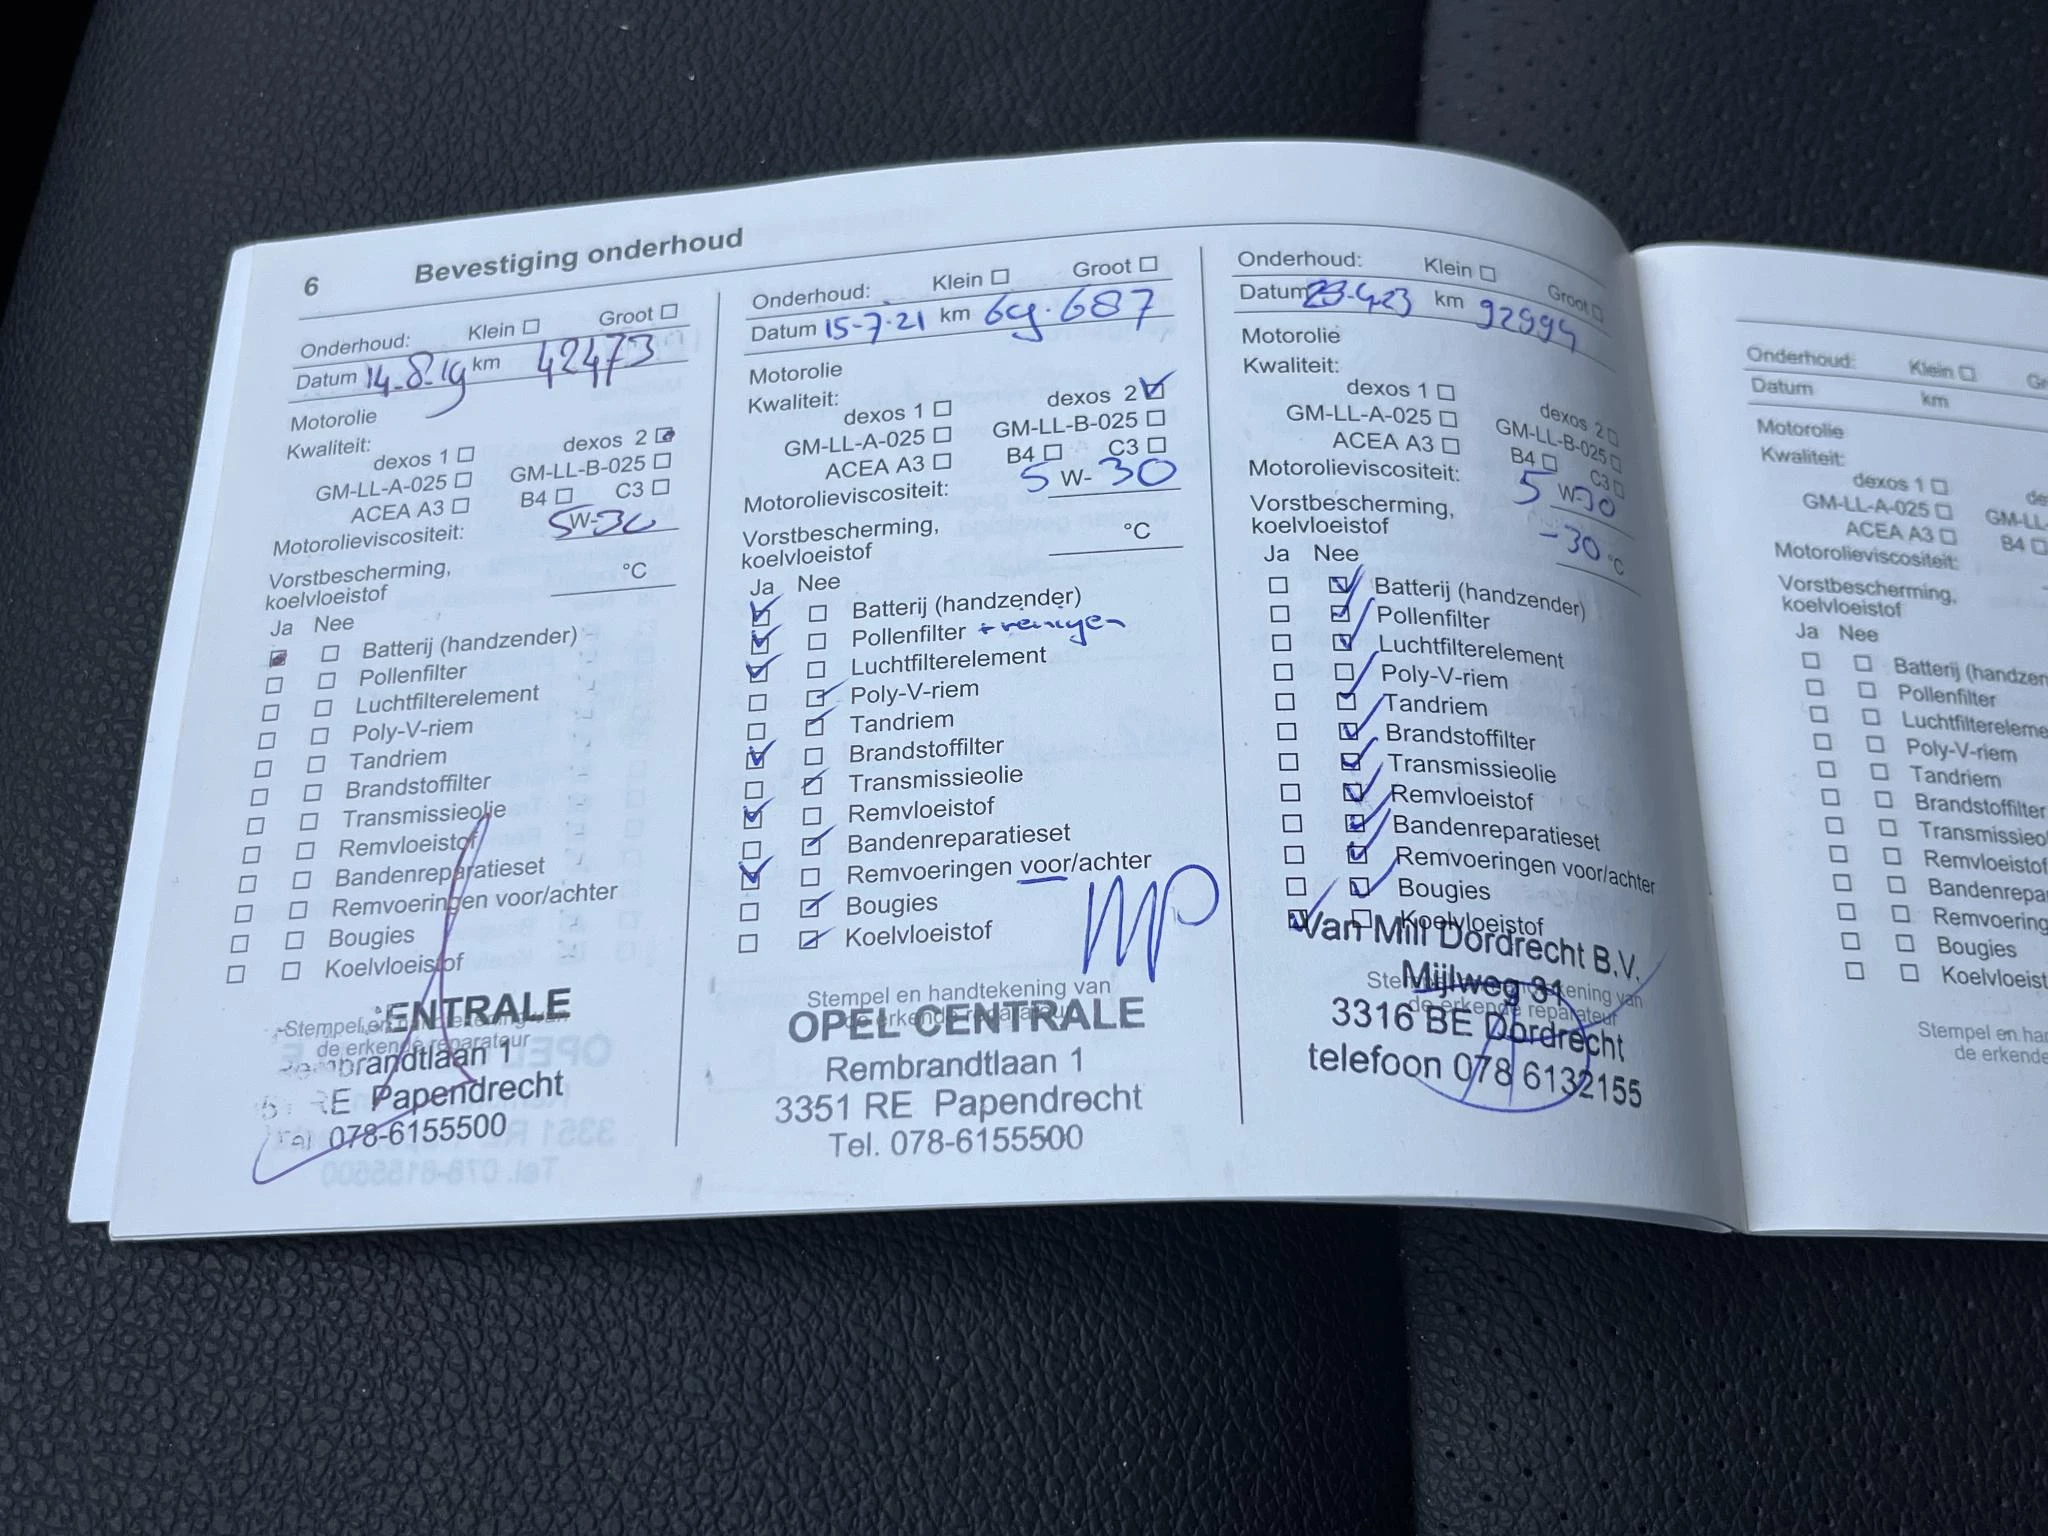 6 Bevestiging onderhoud
Onderhoud: Klein Groot
Datum 14-8-19 km 42473
Motorolie
Kwaliteit:
dexos 1 dexos 2
GM-LL-A-025 GM-LL-B-025
ACEA A3 B4 C3
Motorolieviscositeit: 5W-30
Vorstbescherming,
koelvloeistof °C
Ja Nee
Batterij (handzender)
Pollenfilter
Luchtfilterelement
Poly-V-riem
Tandriem
Brandstoffilter
Transmissieolie
Remvloeistof
Bandenreparatieset
Remvoeringen voor/achter
Bougies
Koelvloeistof
Stempel en handtekening van
de erkende reparateur
ENTRALE
brandtlaan 1
RE Papendrecht
Tel 078-6155500
Onderhoud: Klein Groot
Datum 15-7-21 km 69.687
Motorolie
Kwaliteit:
dexos 1 dexos 2
GM-LL-A-025 GM-LL-B-025
ACEA A3 B4 C3
Motorolieviscositeit: 5 W-30
Vorstbescherming,
koelvloeistof °C
Ja Nee
Batterij (handzender)
Pollenfilter + reinigen
Luchtfilterelement
Poly-V-riem
Tandriem
Brandstoffilter
Transmissieolie
Remvloeistof
Bandenreparatieset
Remvoeringen voor/achter
Bougies
Koelvloeistof
MP
Stempel en handtekening van
de erkende reparateur
OPEL CENTRALE
Rembrandtlaan 1
3351 RE Papendrecht
Tel. 078-6155500
Onderhoud: Klein Groot
Datum km 92994
Motorolie
Kwaliteit:
dexos 1 dexos 2
GM-LL-A-025 GM-LL-B-025
ACEA A3 B4 C3
Motorolieviscositeit: 5 W-30
Vorstbescherming,
koelvloeistof -30 °C
Ja Nee
Batterij (handzender)
Pollenfilter
Luchtfilterelement
Poly-V-riem
Tandriem
Brandstoffilter
Transmissieolie
Remvloeistof
Bandenreparatieset
Remvoeringen voor/achter
Bougies
Koelvloeistof
Stempel en handtekening van
de erkende reparateur
Van Mill Dordrecht B.V.
Mijlweg 31
3316 BE Dordrecht
telefoon 078 6132155
Onderhoud: Klein
Datum km
Motorolie
Kwaliteit:
dexos 1
GM-LL-A-025 GM-LL
ACEA A3 B4
Motorolieviscositeit:
Vorstbescherming,
koelvloeistof
Ja Nee
Batterij (handzen
Pollenfilter
Luchtfiltereleme
Poly-V-riem
Tandriem
Brandstoffilter
Transmissieol
Remvloeistof
Bandenrepa
Remvoering
Bougies
Koelvloeist
Stempel en han
de erkende